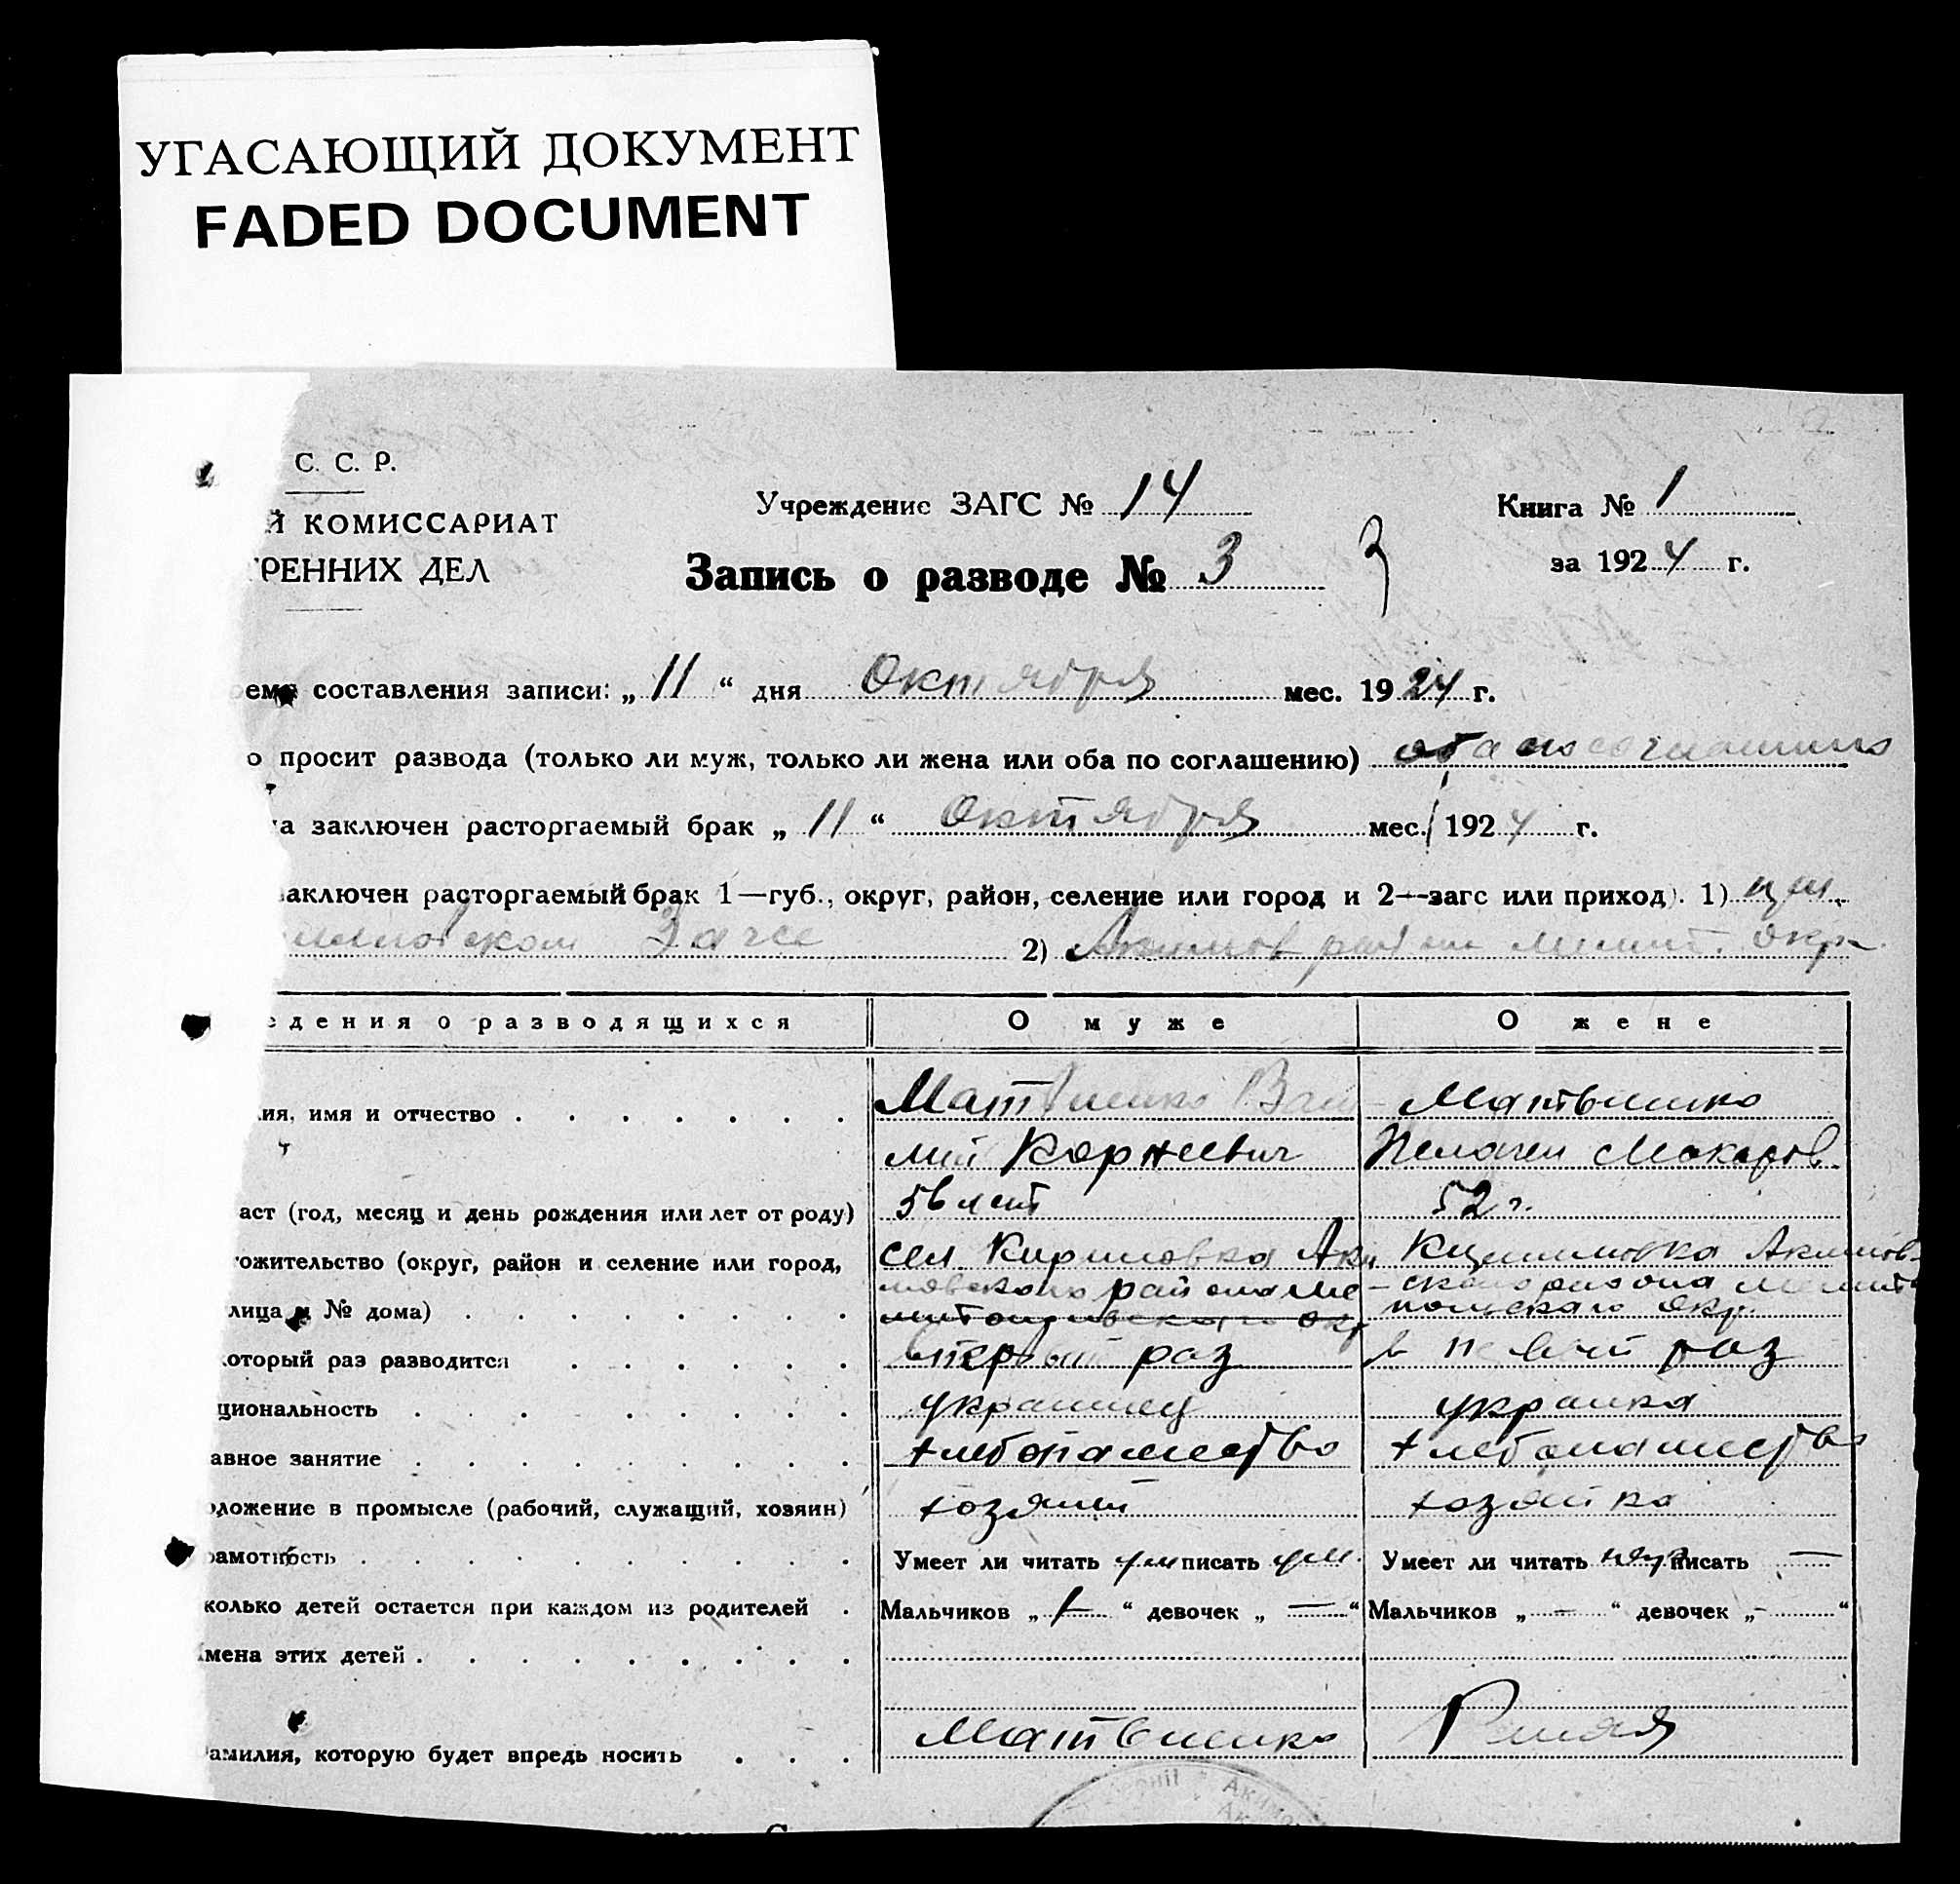 УГАСАЮЩИЙ ДОКУМЕНТ
FADED DOCUMENT
С. С. Р.
Й КОМИССАРИАТ
РЕННИХ ДЕЛ
Учреждение ЗАГС № 14
Запись о разводе № 3 3
Книга № 1
за 1924 г.
составления записи: „ 11 “ дня Октября мес. 1924 г.
о просит развода (только ли муж, только ли жена или оба по соглашению) оба по
а заключен расторгаемый брак „ 11 “ Октября мес. 1924 г.
заключен расторгаемый брак 1—губ., округ, район, селение или город и 2—загс или приход). 1)
Загсе 2) Акимов района Мелит. Окр.
едения о разводящихся
О муже
О жене
ия, имя и отчество
Матвиенко
Корнеевич
Матвиенко
Макаров.
аст (год, месяц и день рождения или лет от роду)
56 лет
52 г.
ожительство (округ, район и селение или город,
лица и № дома)
сел. Аки
мовского района Ме
Акимов-
ского района Мелито
польского Окр.
который раз разводится
впервый раз
в первый раз
циональность
украинец
украинка
авное занятие
хлебопашество
хлебопашество
оложение в промысле (рабочий, служащий, хозяин)
хозяин
хозяйка
рамотность
Умеет ли читать ум писать ум.
Умеет ли читать писать —
колько детей остается при каждом из родителей
Мальчиков „ “ девочек „ — “
Мальчиков „ — “ девочек „ - “
Имена этих детей
амилия, которую будет впредь носить
Матвиенко